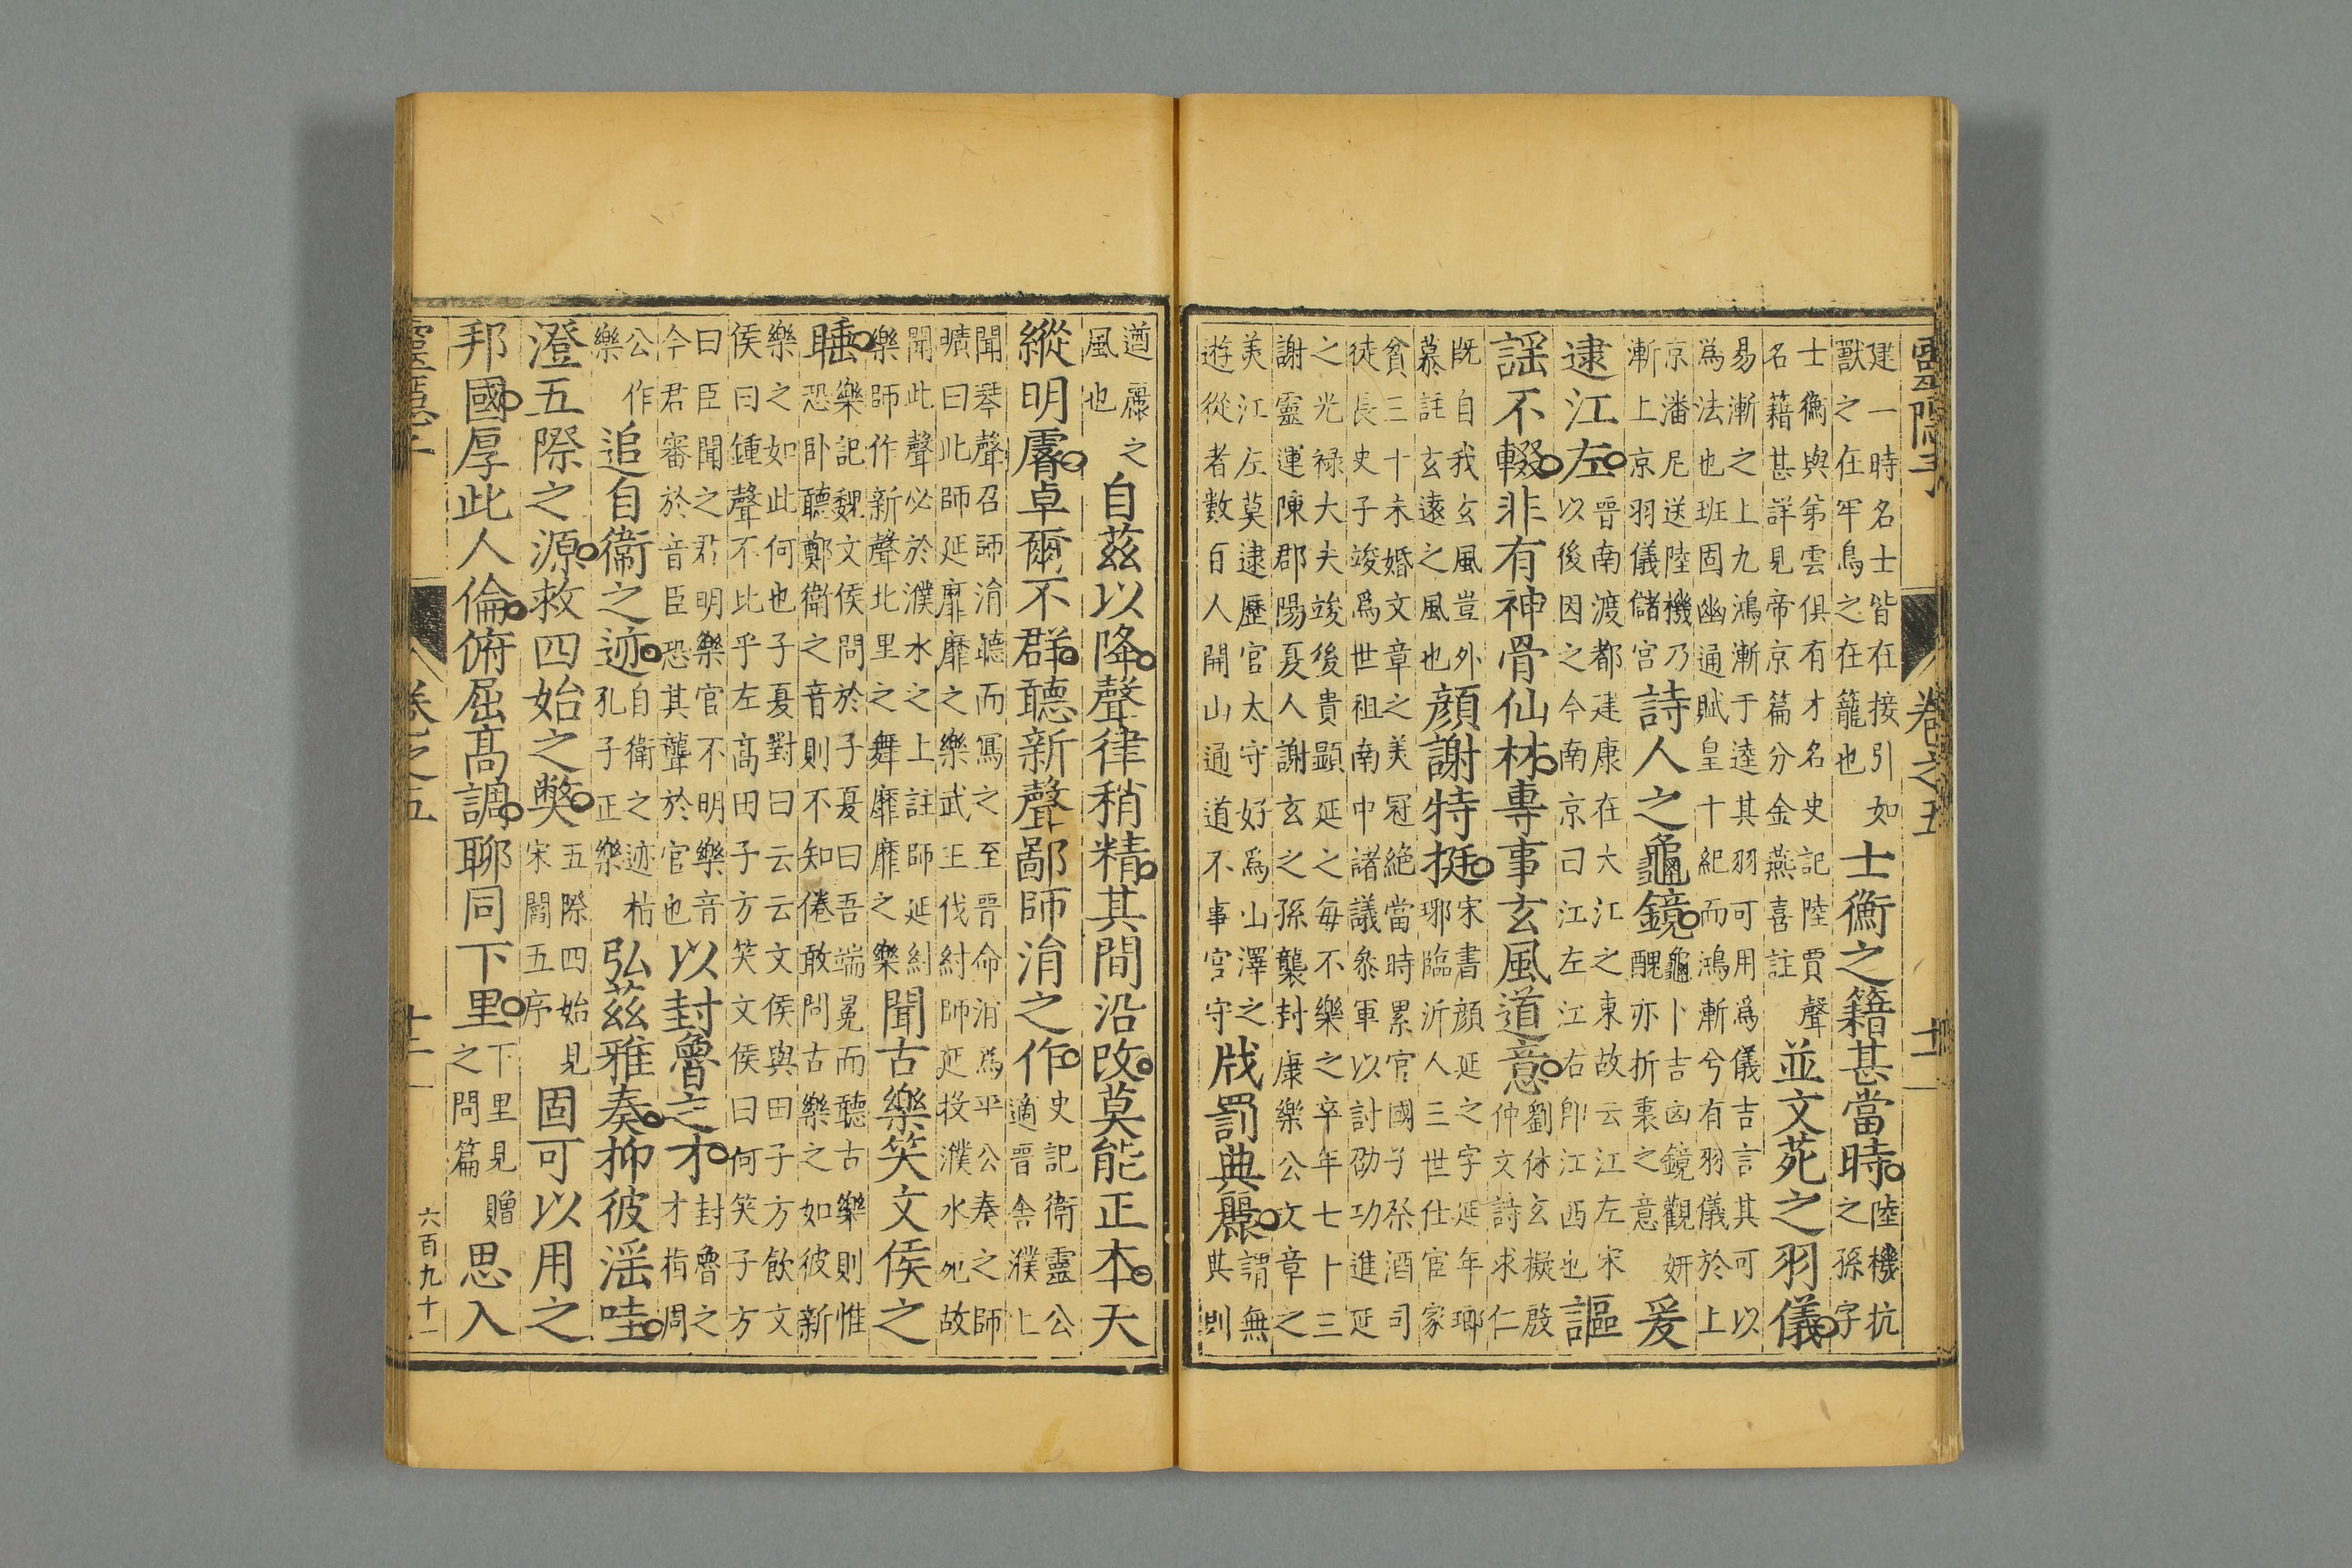 卷之五
建一時名士皆在接引如
獸之在牢鳥之在籠也
士衡之籍甚當時
陸機抗
之孫字
士衡與弟雲俱有才名史記陸賈聲
名藉甚詳見帝京篇分金燕喜註
並文苑之羽儀
易漸之上九鴻漸于逵其羽可用爲儀吉言其可以
爲法也班固幽通賦皇十紀而鴻漸兮有羽儀於上
京潘尼送陸機乃
漸上京羽儀儲宮
詩人之龜鏡
龜卜吉凶鏡觀妍
醜亦折衷之意
爰
逮江左
晉南渡都建康在大江之東故云江左宋
以後因之今南京曰江左江右即江西也
謳
謡不輟非有神骨仙林專事玄風道意
劉休玄擬殷
仲文詩求仁
既自我玄風豈外
慕註玄遠之風也
顏謝特挺
宋書顏延之字延年瑯
琊臨沂人三世仕宦家
貧三十未婚文章之美冠絕當時累官國子祭酒司
徒長史子竣爲世祖南中諸議叅軍以討劭功進延
之光禄大夫竣後貴顯延之每不樂之卒年七卜三
謝靈運陳郡陽夏人謝玄之孫襲封康樂公文章之
美江左莫逮歷官太守好爲山澤之
遊從者數百人開山通道不事官守
戕罰典麗
謂無
典則
遒麗之
風也
自茲以降聲律稍精其間沿改莫能正本天
縱明睿卓爾不群聽新聲鄙師涓之作
史記衛靈公
適晉舍濮上
聞琴聲召師涓聽而寫之至晉命涓爲平公奏之師
曠曰此師延靡靡之樂武王伐紂師延投濮水死故
聞此聲必於濮水之上註師延紂
樂師作新聲北里之舞靡靡之樂
聞古樂笑文侯之
睡
樂記魏文侯問於子夏曰吾端冕而聽古樂則惟
恐卧聽鄭衛之音則不知倦敢問古樂之如彼新
樂之如此何也子夏對曰云云文侯與田子方飲文
侯曰鍾聲不比乎左高田子方笑文侯曰何笑子方
曰臣聞之君明樂官不明樂音
今君審於音臣恐其聾於官也
以封魯之才
封魯之
才指周
公作
樂
追自衛之迹
自衛之迹枯
孔子正樂
弘茲雅奏抑彼滛哇
澄五際之源救四始之獘
五際四始見
宋闗五序
固可以用之
邦國厚此人倫俯屈高調聊同下里
下里見贈
之問篇
思入
卷之五
六百九十一